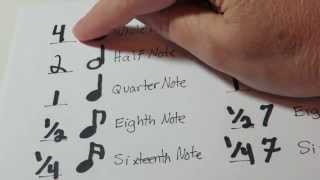 4
2 Half Note
1 Quarter Note 1
1/2 Eighth Note 1/2
1/4 Sixteenth Note 1/4